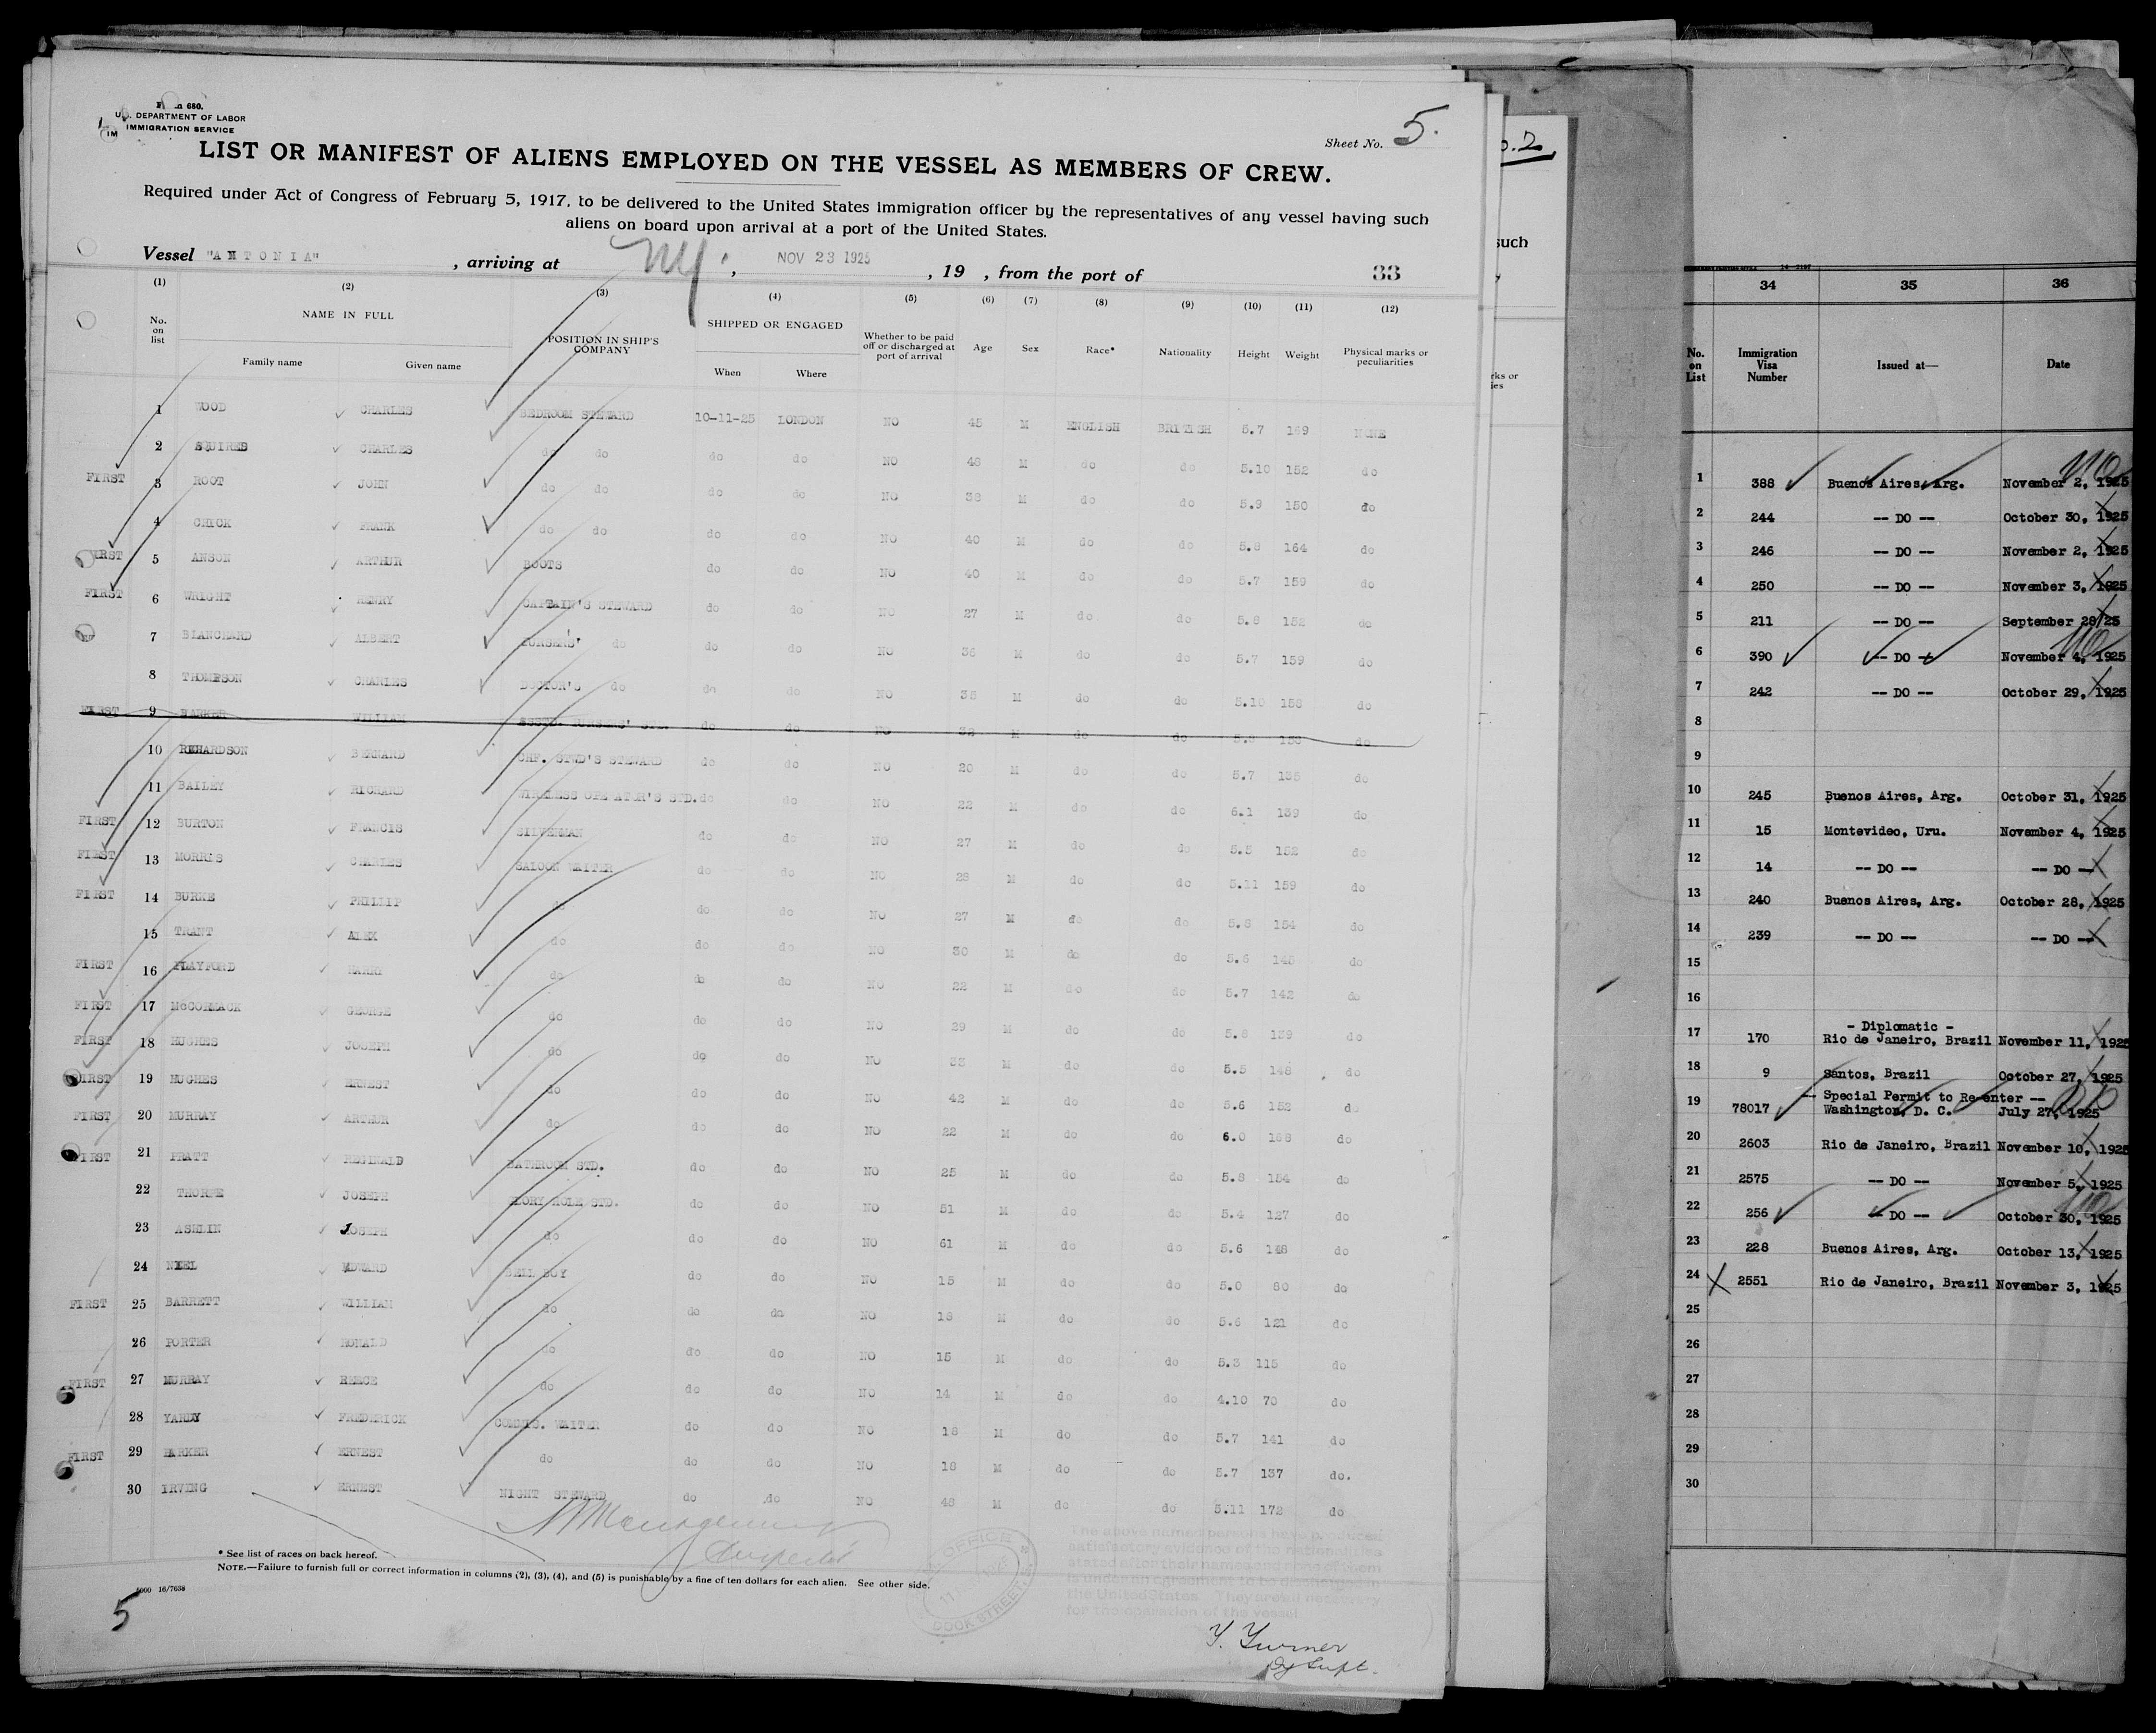 680.
DEPARTMENT OF LABOR
IMMIGRATION SERVICE
Sheet No. 5.
LIST OR MANIFEST OF ALIENS EMPLOYED ON THE VESSEL AS MEMBERS OF CREW.
Required under Act of Congress of February 5, 1917, to be delivered to the United States immigration officer by the representatives of any vessel having such
aliens on board upon arrival at a port of the United States.
Vessel "ANTONIA", arriving at NY., NOV 23 1925, 19 , from the port of 33
(1) (2) (3) (4) (5) (6) (7) (8) (9) (10) (11) (12)
No. on list NAME IN FULL Family name Given name POSITION IN SHIP'S COMPANY SHIPPED OR ENGAGED When Where Whether to be paid off or discharged at port of arrival Age Sex Race* Nationality Height Weight Physical marks or peculiarities
1 WOOD CHARLES BEDROOM STEWARD 10-11-25 LONDON NO 45 M ENGLISH BRITISH 5.7 169 NONE
2 SQUIRES CHARLES do do do do NO 48 M do do 5.10 152 do
FIRST 3 ROOT JOHN do do do do NO 38 M do do 5.9 150 do
4 CHICK FRANK do do do do NO 40 M do do 5.8 164 do
FIRST 5 ANSON ARTHUR BOOTS do do NO 40 M do do 5.7 159 do
FIRST 6 WRIGHT HENRY CAPTAIN'S STEWARD do do NO 27 M do do 5.8 152 do
7 BLANCHARD ALBERT PURSERS' do do do NO 36 M do do 5.7 159 do
8 THOMPSON CHARLES DOCTOR'S do do do NO 35 M do do 5.10 158 do
FIRST 9 BARKER WILLIAM ASSTD. PURSERS' STD. do do NO 32 M do do 5.8 150 do
10 RICHARDSON BERNARD CHF. STWD'S STEWARD do do NO 20 M do do 5.7 135 do
11 BAILEY RICHARD WIRELESS OPERATOR'S STD. do do NO 22 M do do 6.1 139 do
FIRST 12 BURTON FRANCIS SILVERMAN do do NO 27 M do do 5.5 152 do
FIRST 13 MORRIS CHARLES SALOON WAITER do do NO 28 M do do 5.11 159 do
FIRST 14 BURKE PHILLIP do do do NO 27 M do do 5.8 154 do
15 TRANT ALEX do do do NO 30 M do do 5.6 145 do
FIRST 16 PLAYFORD HARRY do do do NO 22 M do do 5.7 142 do
FIRST 17 McCORMACK GEORGE do do do NO 29 M do do 5.8 139 do
FIRST 18 HUGHES JOSEPH do do do NO 33 M do do 5.5 148 do
FIRST 19 HUGHES ERNEST do do do NO 42 M do do 5.6 152 do
FIRST 20 MURRAY ARTHUR do do do NO 22 M do do 6.0 168 do
FIRST 21 PRATT REGINALD BATHROOM STD. do do NO 25 M do do 5.8 154 do
22 THORPE JOSEPH GLORY HOLE STD. do do NO 51 M do do 5.4 127 do
23 ASHLIN JOSEPH do do do NO 61 M do do 5.6 148 do
24 NIEL EDWARD BELL BOY do do NO 15 M do do 5.0 80 do
FIRST 25 BARRETT WILLIAM do do do NO 18 M do do 5.6 121 do
26 PORTER RONALD do do do NO 15 M do do 5.3 115 do
FIRST 27 MURRAY REECE do do do NO 14 M do do 4.10 70 do
28 YARDY FREDERICK COMMIS. WAITER do do NO 18 M do do 5.7 141 do
FIRST 29 PARKER ERNEST do do do NO 18 M do do 5.7 137 do.
30 IRVING ERNEST NIGHT STEWARD do do NO 48 M do do 5.11 172 do
Inspector
* See list of races on back hereof.
NOTE.—Failure to furnish full or correct information in columns (2), (3), (4), and (5) is punishable by a fine of ten dollars for each alien. See other side.
16/7638
5
OFFICE
DOCK STREET
The above named persons have produced
satisfactory evidence of the nationalities
stated after their names and none of them
is under an agreement to be discharged in
the United States. They are all necessary
for the operation of the vessel
Y. Turner
Dy Supt.
o.2.
such
rks or
ies
34 35 36
No. on List Immigration Visa Number Issued at— Date
1 388 Buenos Aires, Arg. November 2, 1925
2 244 -- DO -- October 30, 1925
3 246 -- DO -- November 2, 1925
4 250 -- DO -- November 3, 1925
5 211 -- DO -- September 28/25
6 390 -- DO -- November 4, 1925
7 242 -- DO -- October 29, 1925
8
9
10 245 Buenos Aires, Arg. October 31, 1925
11 15 Montevideo, Uru. November 4, 1925
12 14 -- DO -- -- DO --
13 240 Buenos Aires, Arg. October 28, 1925
14 239 -- DO -- -- DO --
15
16
17 170 - Diplomatic - Rio de Janeiro, Brazil November 11, 1925
18 9 Santos, Brazil October 27, 1925
19 78017 -- Special Permit to Re-enter -- Washington, D. C. July 27, 1925
20 2603 Rio de Janeiro, Brazil November 10, 1925
21 2575 -- DO -- November 5, 1925
22 256 -- DO -- October 30, 1925
23 228 Buenos Aires, Arg. October 13, 1925
24 2551 Rio de Janeiro, Brazil November 3, 1925
25
26
27
28
29
30